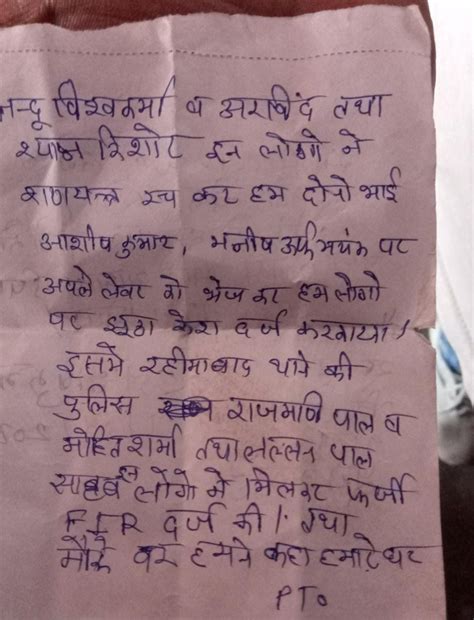 नन्दू विश्वकर्मा व अरविंद तथा
श्याम किशोर इन लोगो ने
शणयन्त्र रच कर हम दोनो भाई
आशीष कुमार, मनीष उर्फ मयंक पर
अपने लेबर को भेज कर हम लोगो
पर झूठा केश दर्ज करवाया।
इसमे रहीमाबाद थाने की
पुलिस राजमणि पाल व
मोहित शर्मा तथा लल्लन पाल
साहब इन लोगो ने मिलकर फर्जी
FIR दर्ज की। तथा
मौके पर हमने कहा हमारे घर
PTO